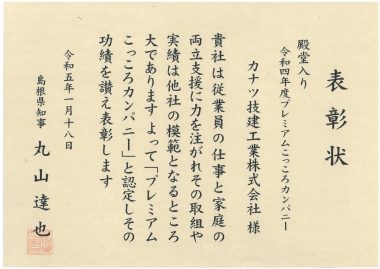 表彰状
殿堂入り
令和四年度プレミアムこっころカンパニー
カナツ技建工業株式会社 様
貴社は従業員の仕事と家庭の
両立支援に力を注がれその取組や
実績は他社の模範となるところ
大であります よって「プレミアム
こっころカンパニー」と認定しその
功績を讃え表彰します
令和五年一月十八日
島根県知事 丸山達也